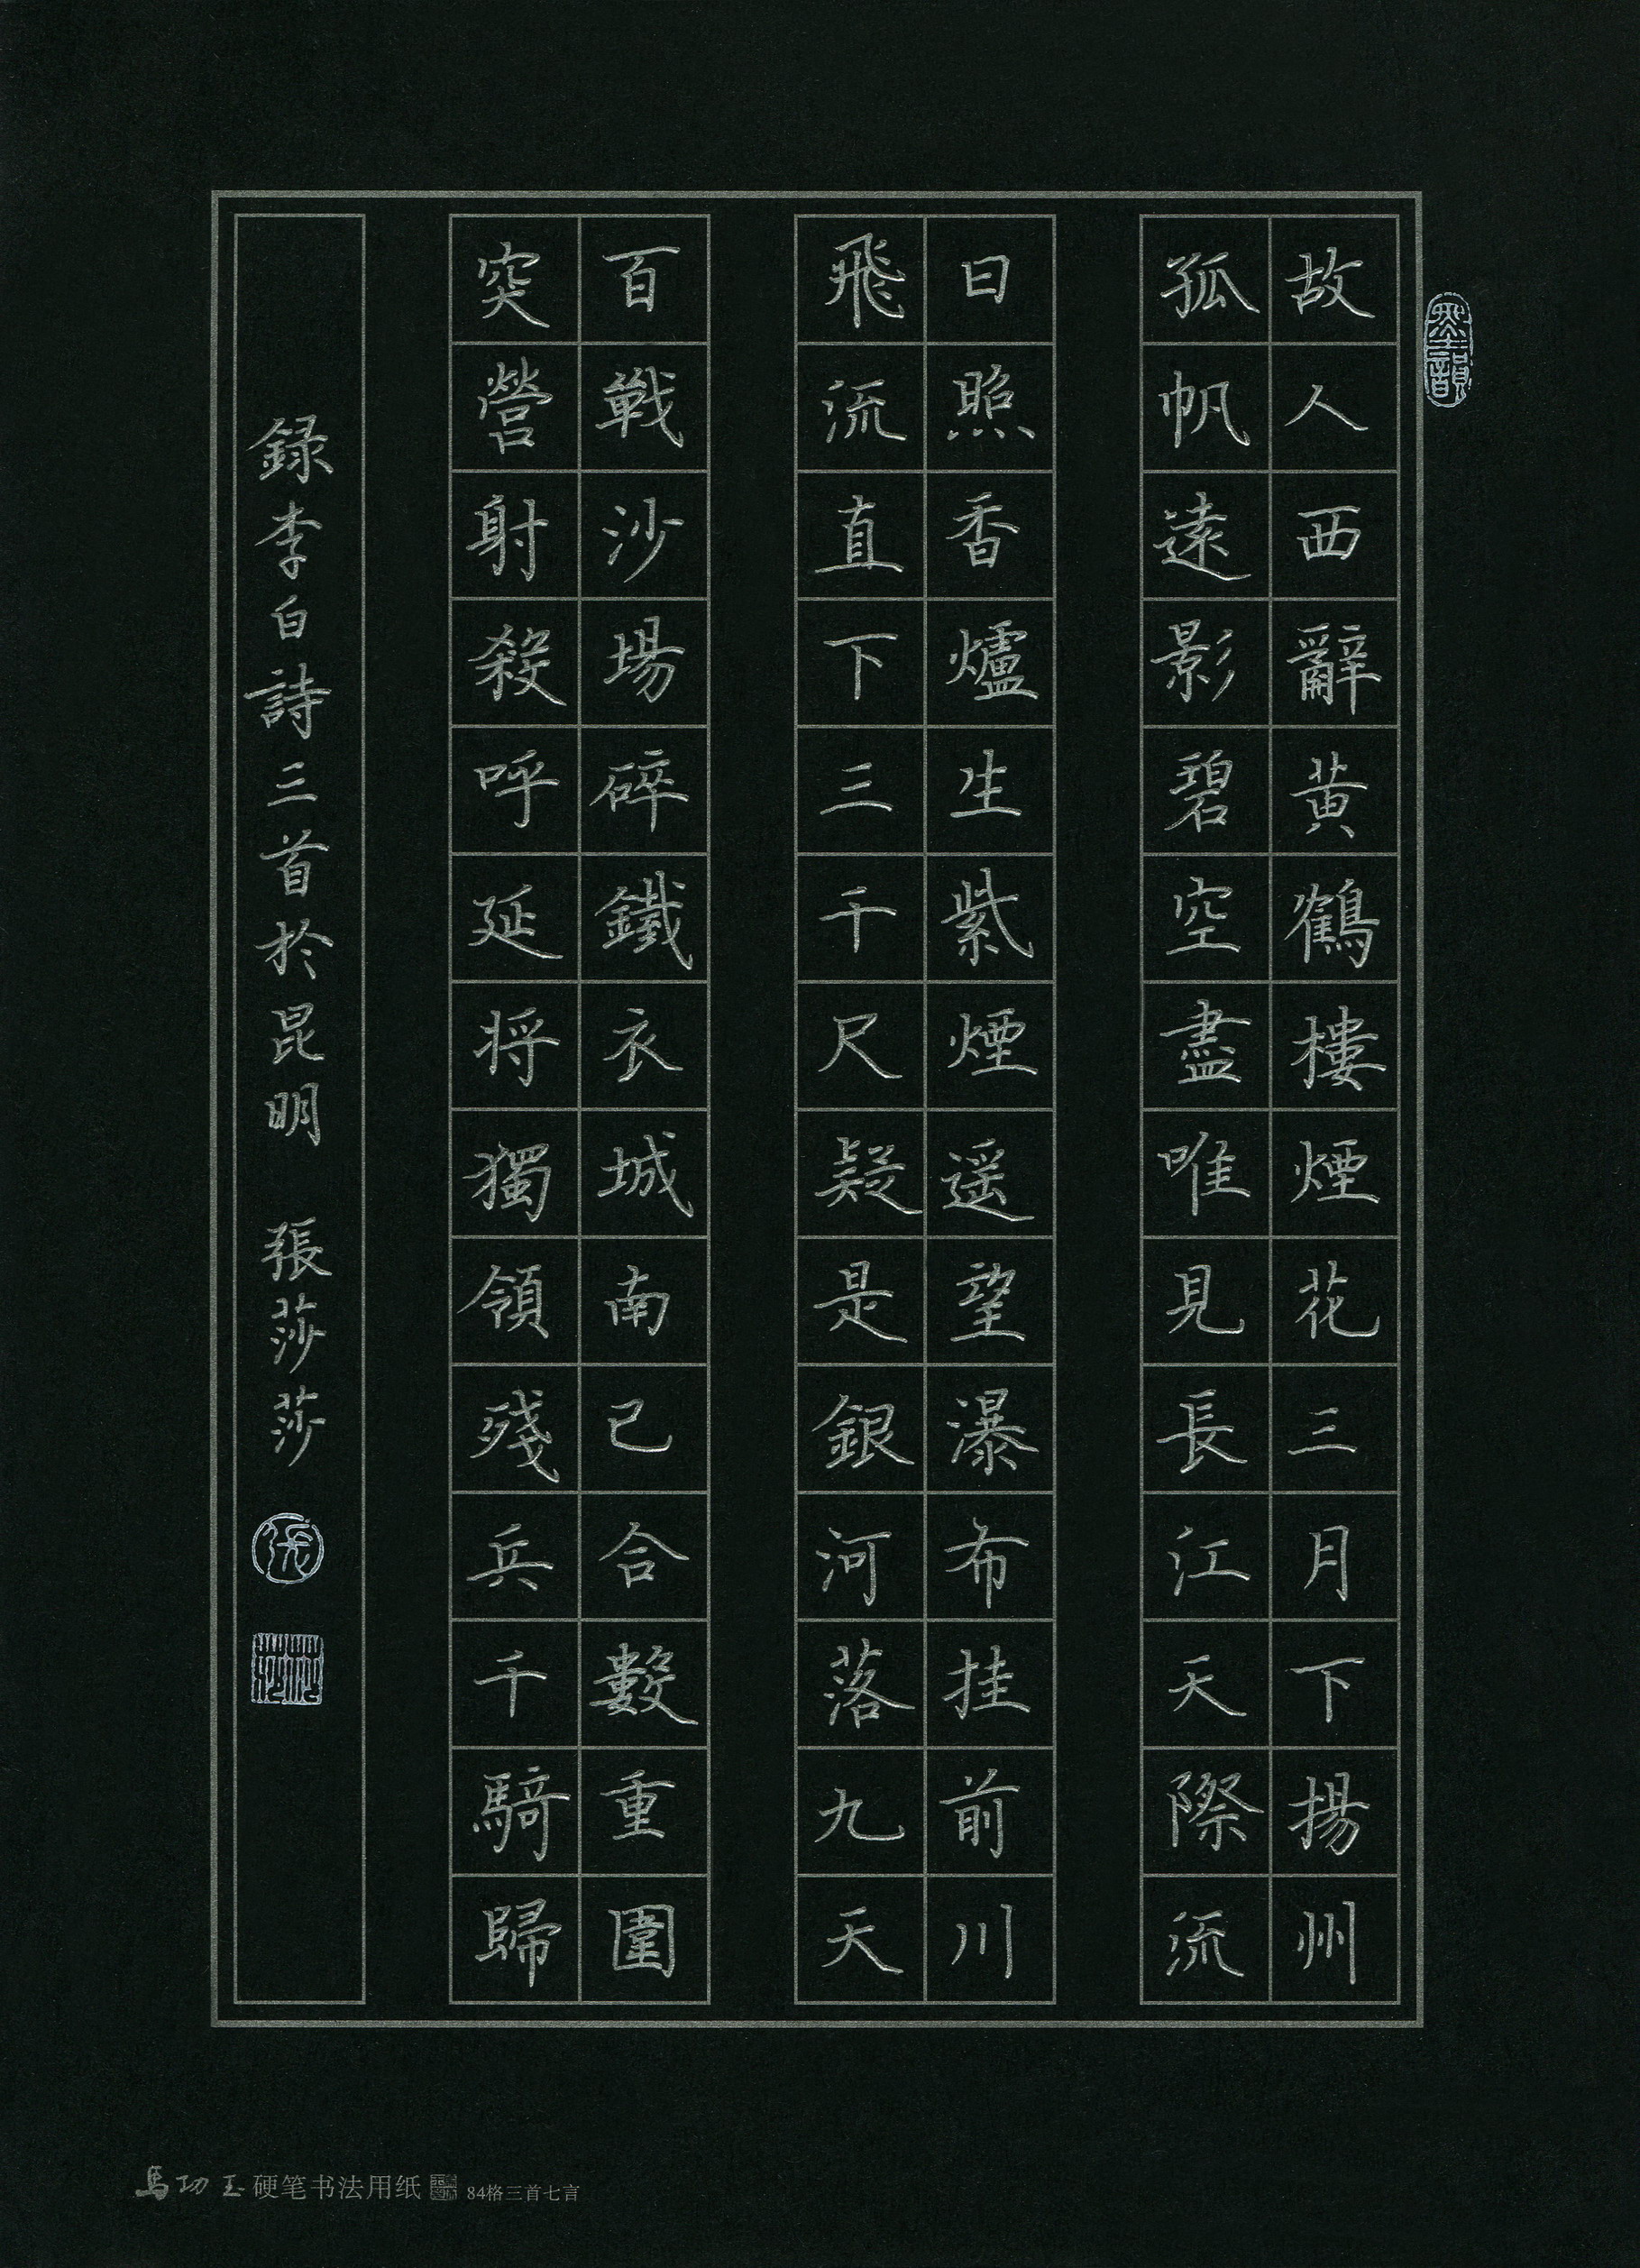 故人西辭黃鶴樓煙花三月下揚州
孤帆遠影碧空盡唯見長江天際流
日照香爐生紫煙遥望瀑布挂前川
飛流直下三千尺疑是銀河落九天
百戰沙場碎鐵衣城南已合數重圍
突營射殺呼延将獨領殘兵千騎歸
録李白詩三首於昆明 張莎莎
墨韻
張
莎莎
馬功玉硬笔书法用纸 84格三首七言